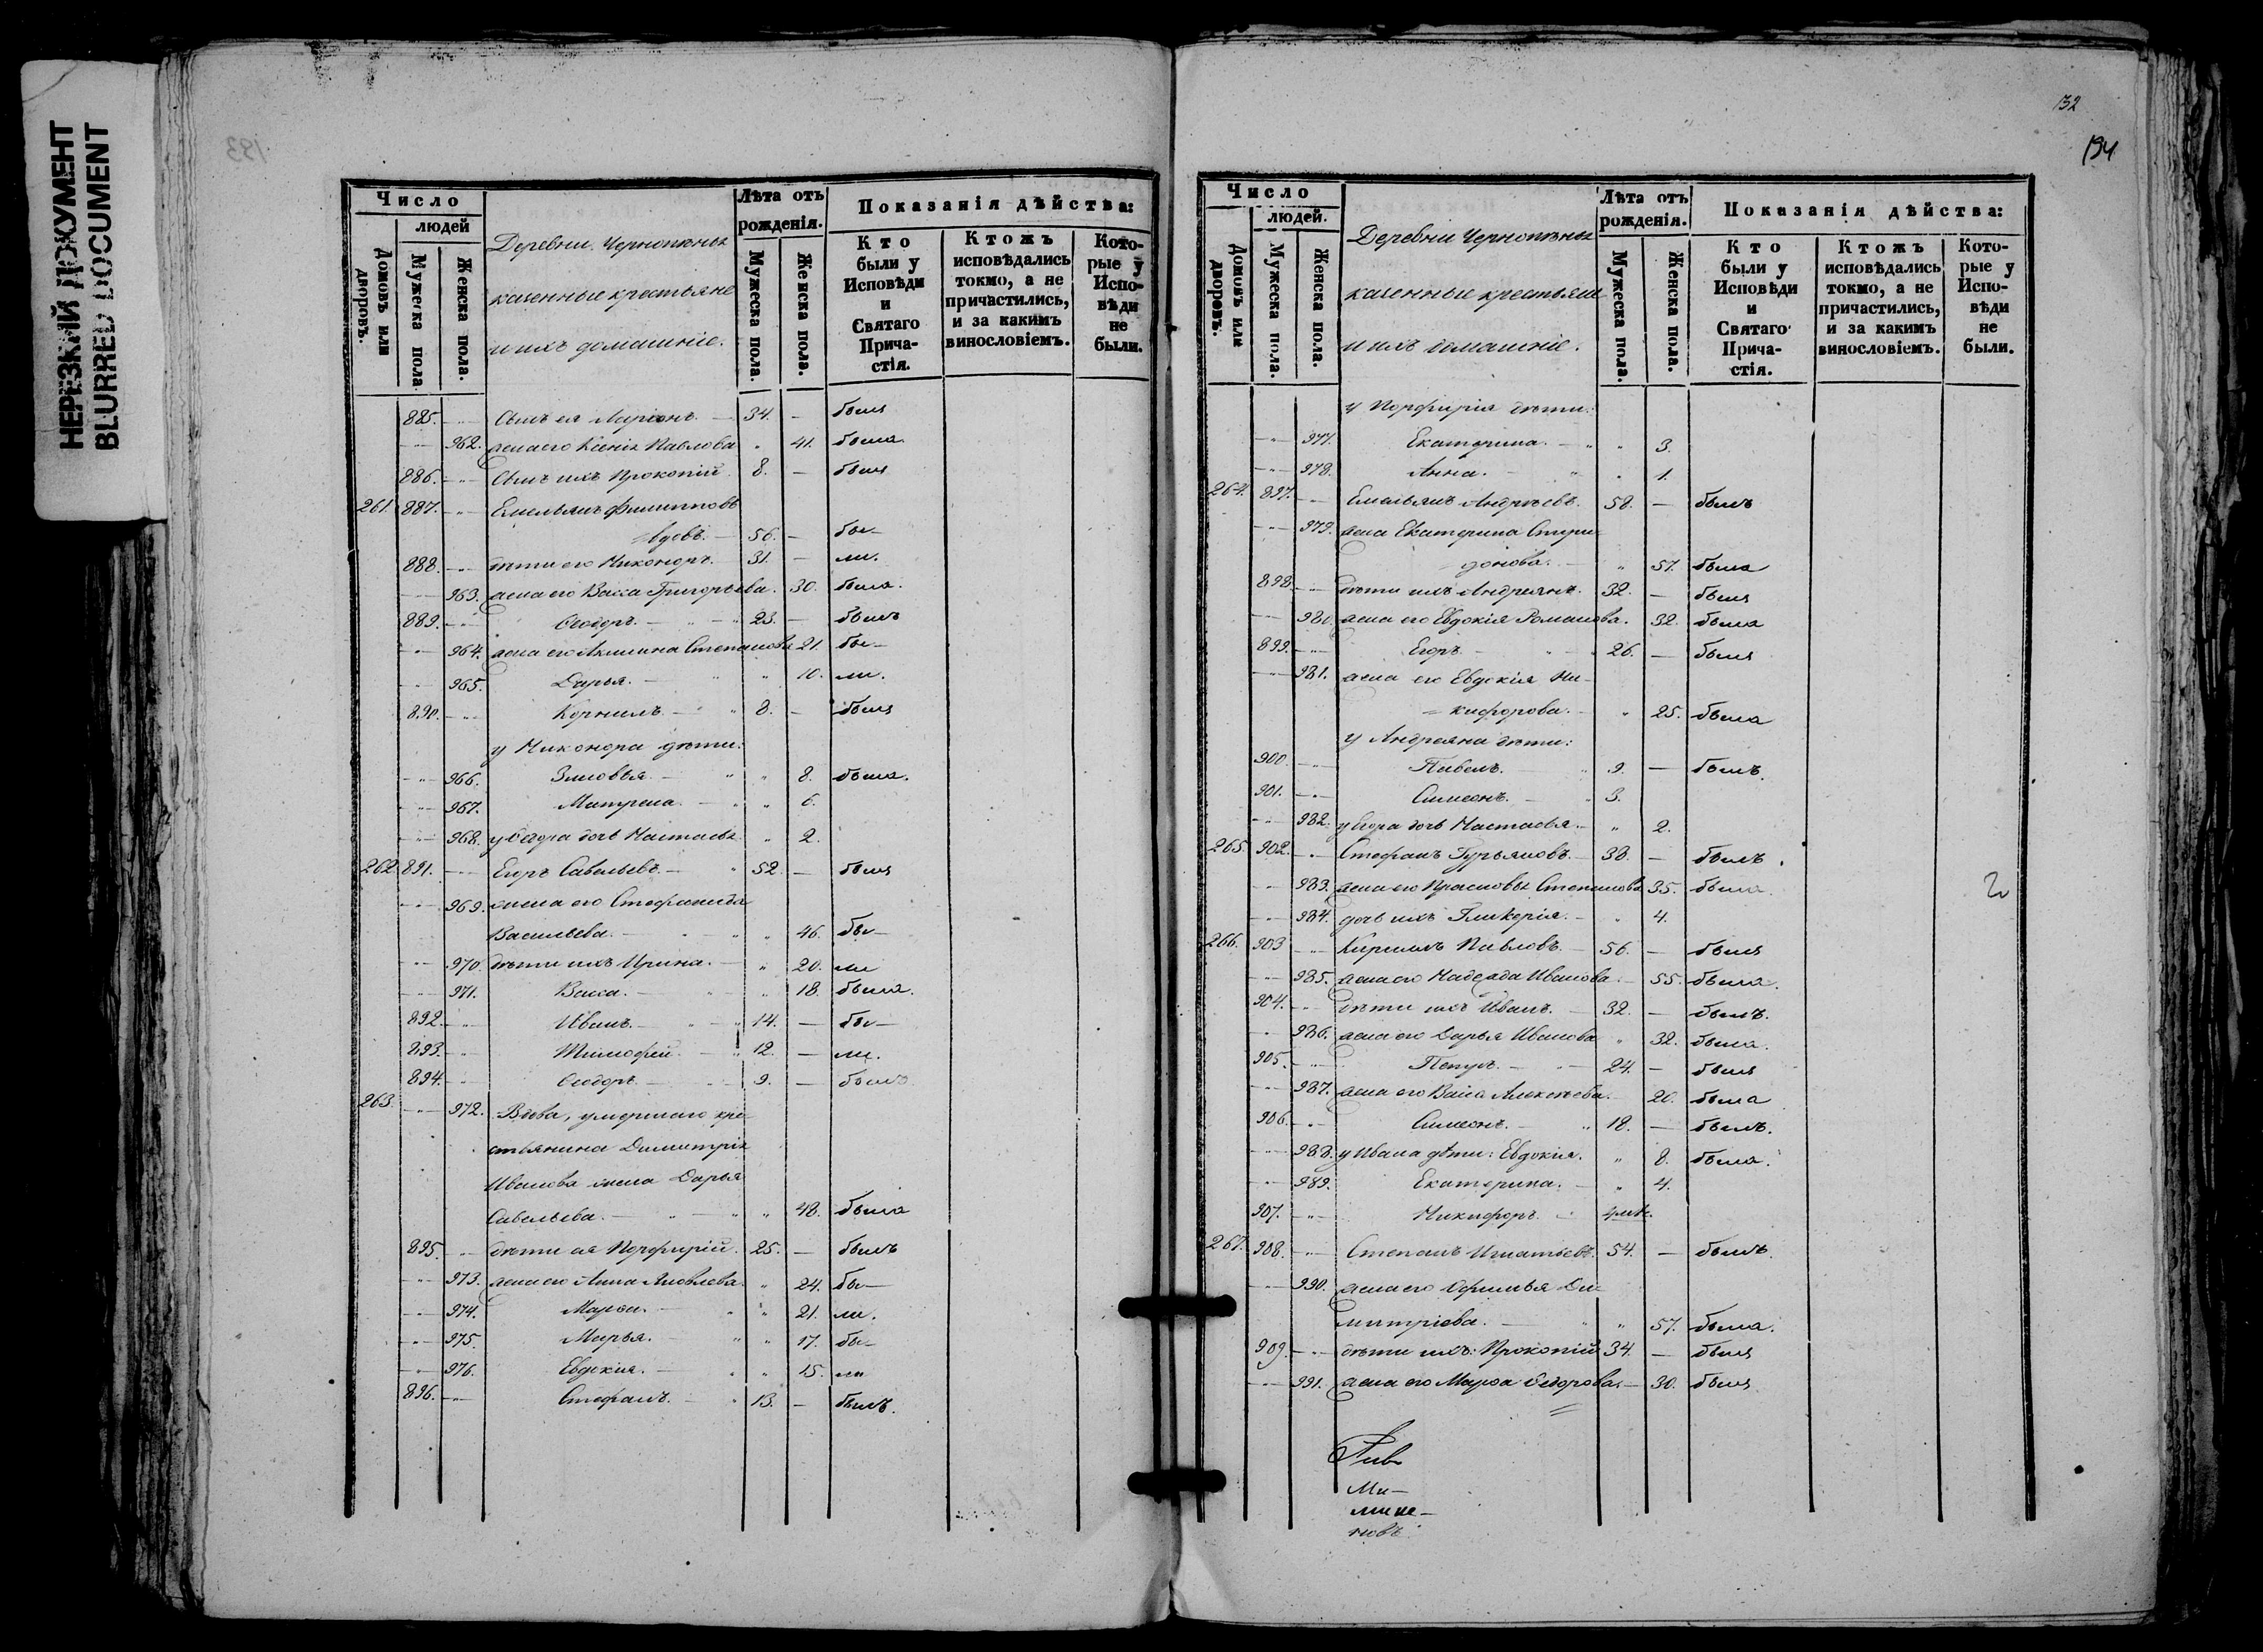 НЕРЕЗКИЙ ДОКУМЕНТ
BLURRED DOCUMENT
193
Число
людей
Домовъ или дворовъ.
Мужеска пола.
Женска пола.
Деревни Чернопенья
казенные крестьяне
и ихъ домашніе.
Лѣта отъ рожденія.
Мужеска пола.
Женска пола.
Показанія дѣйства:
Кто были у Исповѣди и Святаго Причастія.
Ктожъ исповѣдались токмо, а не причастились, и за какимъ винословіемъ.
Которые у Исповѣди не были.
885. Сынъ ея Миріонъ. 34. — былъ
962. жена его Ксенія Павлова 41. была
886. Сынъ ихъ Прокопій 8. — былъ
261. 887. Емельянъ Филипповъ
вдовъ. 56. — бы-
888. дѣти его Никоноръ. 31. — ли.
963. жена его Васса Григорьева. 30. была.
889. Ѳеодоръ. 23. — былъ
964. жена его Акилина Степанова 21. бы-
965. Дарья. 10. ли.
890. Корнилъ. 8. — былъ
у Никонора дѣти:
966. Зиновья. 8. была.
967. Матрена. 6.
968. у Ѳедора дочь Настасья 2.
262. 891. Егоръ Савельевъ. 52. — былъ
969. жена его Стефанида
Васильева. 46. бы-
970. дѣти ихъ Ирина. 20. ли
971. Васса. 18. была.
892. Иванъ. 14. — бы-
893. Тимофей. 12. — ли.
894. Ѳеодоръ. 9. — былъ
263. 972. Вдова, умершаго кре-
стьянина Димитрія
Иванова жена Дарья
Савельева. 48. была
895. дѣти ея Порфирій. 25. — былъ
973. жена его Анна Яковлева. 24. бы-
974. Марѳа. 21. ли.
975. Марья. 17. бы-
976. Евдокія. 15. ли
896. Стефанъ. 13. — былъ.
132
194
Число
людей.
Домовъ или дворовъ.
Мужеска пола.
Женска пола.
Деревни Чернопенья
казенные крестьяне
и ихъ домашніе.
Лѣта отъ рожденія.
Мужеска пола.
Женска пола.
Показанія дѣйства:
Кто были у Исповѣди и Святаго Причастія.
Ктожъ исповѣдались токмо, а не причастились, и за какимъ винословіемъ.
Которые у Исповѣди не были.
у Порфирія дѣти:
977. Екатерина. 3.
978. Анна. 1.
264. 897. Емельянъ Андреевъ. 58. — былъ
979. жена Екатерина Спири-
донова. 57. была
898. дѣти ихъ Андреянъ. 32. — былъ
980. жена его Евдокія Романова. 32. была
899. Егоръ. 26. — былъ
981. жена его Евдокія Ни-
кифорова. 25. была
у Андреяна дѣти:
900. Павелъ. 9. — былъ.
901. Симеонъ. 3.
982. у Егора дочь Настасья. 2.
265. 902. Стефанъ Гурьяновъ. 38. — былъ.
983. жена его Прасковья Степанова 35. была.
984. дочь ихъ Гликерія. 4.
266. 903. Кирилъ Павловъ. 56. — былъ
985. жена его Надежда Иванова. 55. была.
904. дѣти ихъ Иванъ. 32. — былъ.
986. жена его Дарья Иванова 32. была.
905. Петръ. 24. — былъ
987. жена его Васса Алексѣева. 20. была
906. Симеонъ. 18. — былъ.
988. у Ивана дѣти: Евдокія. 8. была.
989. Екатерина. 4.
907. Никифоръ.
267. 908. Степанъ Игнатьевъ. 54. — былъ.
990. жена его Ефимья Ди-
митріева. 57. была.
909. дѣти ихъ: Прокопій 34. — былъ
991. жена его Марѳа Ѳедорова. 30. былъ